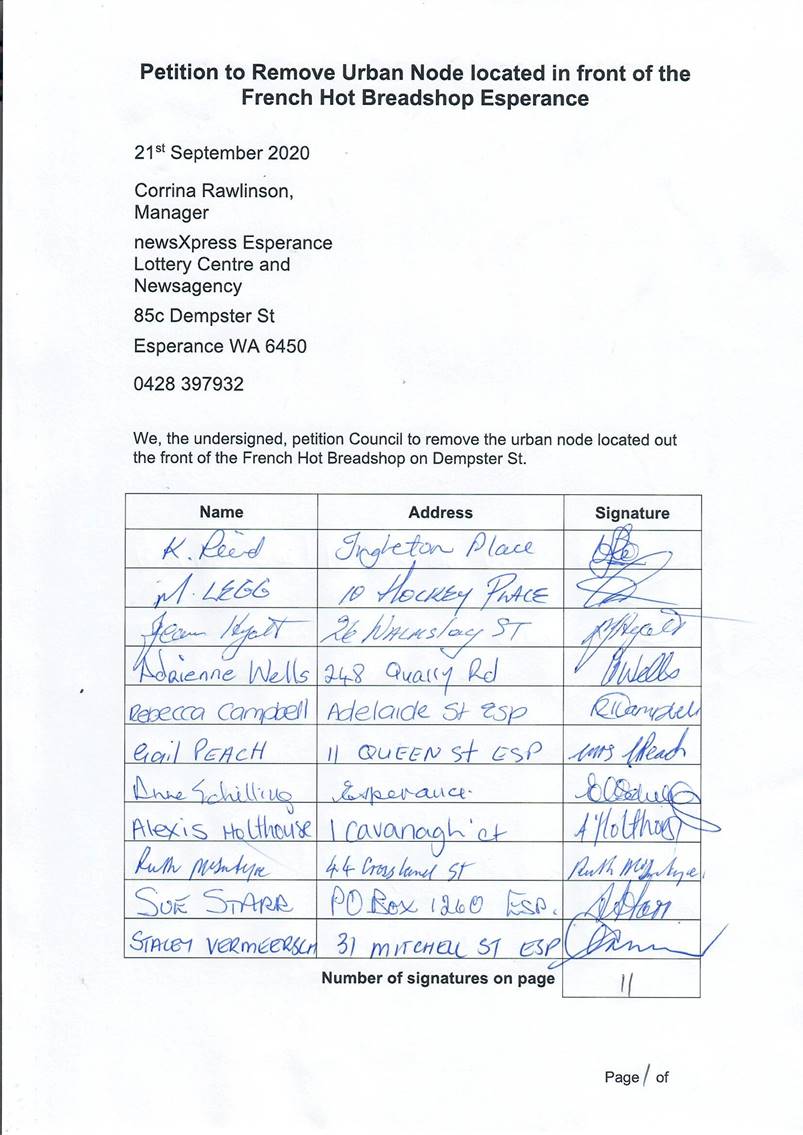 Petition to Remove Urban Node located in front of the
French Hot Breadshop Esperance
21st September 2020
Corrina Rawlinson,
Manager
newsXpress Esperance
Lottery Centre and
Newsagency
85c Dempster St
Esperance WA 6450
0428 397932
We, the undersigned, petition Council to remove the urban node located out
the front of the French Hot Breadshop on Dempster St.
Name Address Signature
K. Reid Ingleton Place
M. LEGG 10 HOCKEY PLACE
Jean Hyatt 26 Walmsley ST
Adrienne Wells 248 Quarry Rd Wells
Rebecca Campbell Adelaide St ESP R Campbell
Gail PEACH 11 QUEEN St ESP Mrs G Peach
Anne Schilling Esperance.
Alexis Holthouse 1 Cavanagh ct A Holthouse
Ruth McIntyre 44 Crossland St Ruth McIntyre
SUE STARR PO Box 1260 ESP.
STACEY VERMEERSCH 31 MITCHELL ST ESP
Number of signatures on page 11
Page 1 of